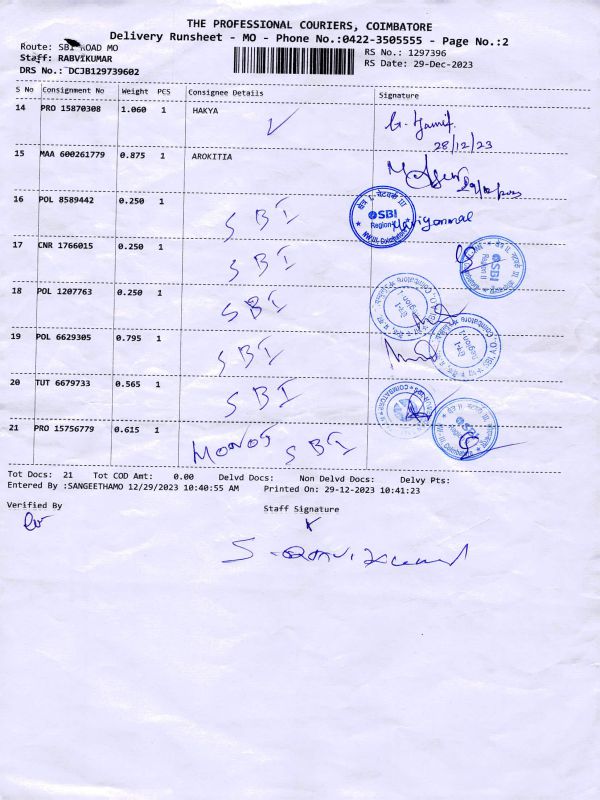 THE PROFESSIONAL COURIERS, COIMBATORE
Delivery Runsheet - MO - Phone No.:0422-3505555 - Page No.:2
Route: SBI ROAD MO
RS No.: 1297396
Staff: RABVIKUMAR
RS Date: 29-Dec-2023
DRS No.: DCJB129739602
S No Consignment No Weight PCS Consignee Details Signature
14 PRO 15870308 1.060 1 HAKYA
G. Hamif.
28/12/23
15 MAA 600261779 0.875 1 AROKITIA
16 POL 8589442 0.250 1 SBI
SBI
Region
17 CNR 1766015 0.250 1 SBI
SBI
Region II
18 POL 1207763 0.250 1 SBI
19 POL 6629305 0.795 1 SBI
20 TUT 6679733 0.565 1 SBI
21 PRO 15756779 0.615 1 SBI
SBI
Tot Docs: 21 Tot COD Amt: 0.00 Delvd Docs: Non Delvd Docs: Delvy Pts:
Entered By :SANGEETHAMO 12/29/2023 10:40:55 AM Printed On: 29-12-2023 10:41:23
Verified By
Staff Signature
S. Ravikumar